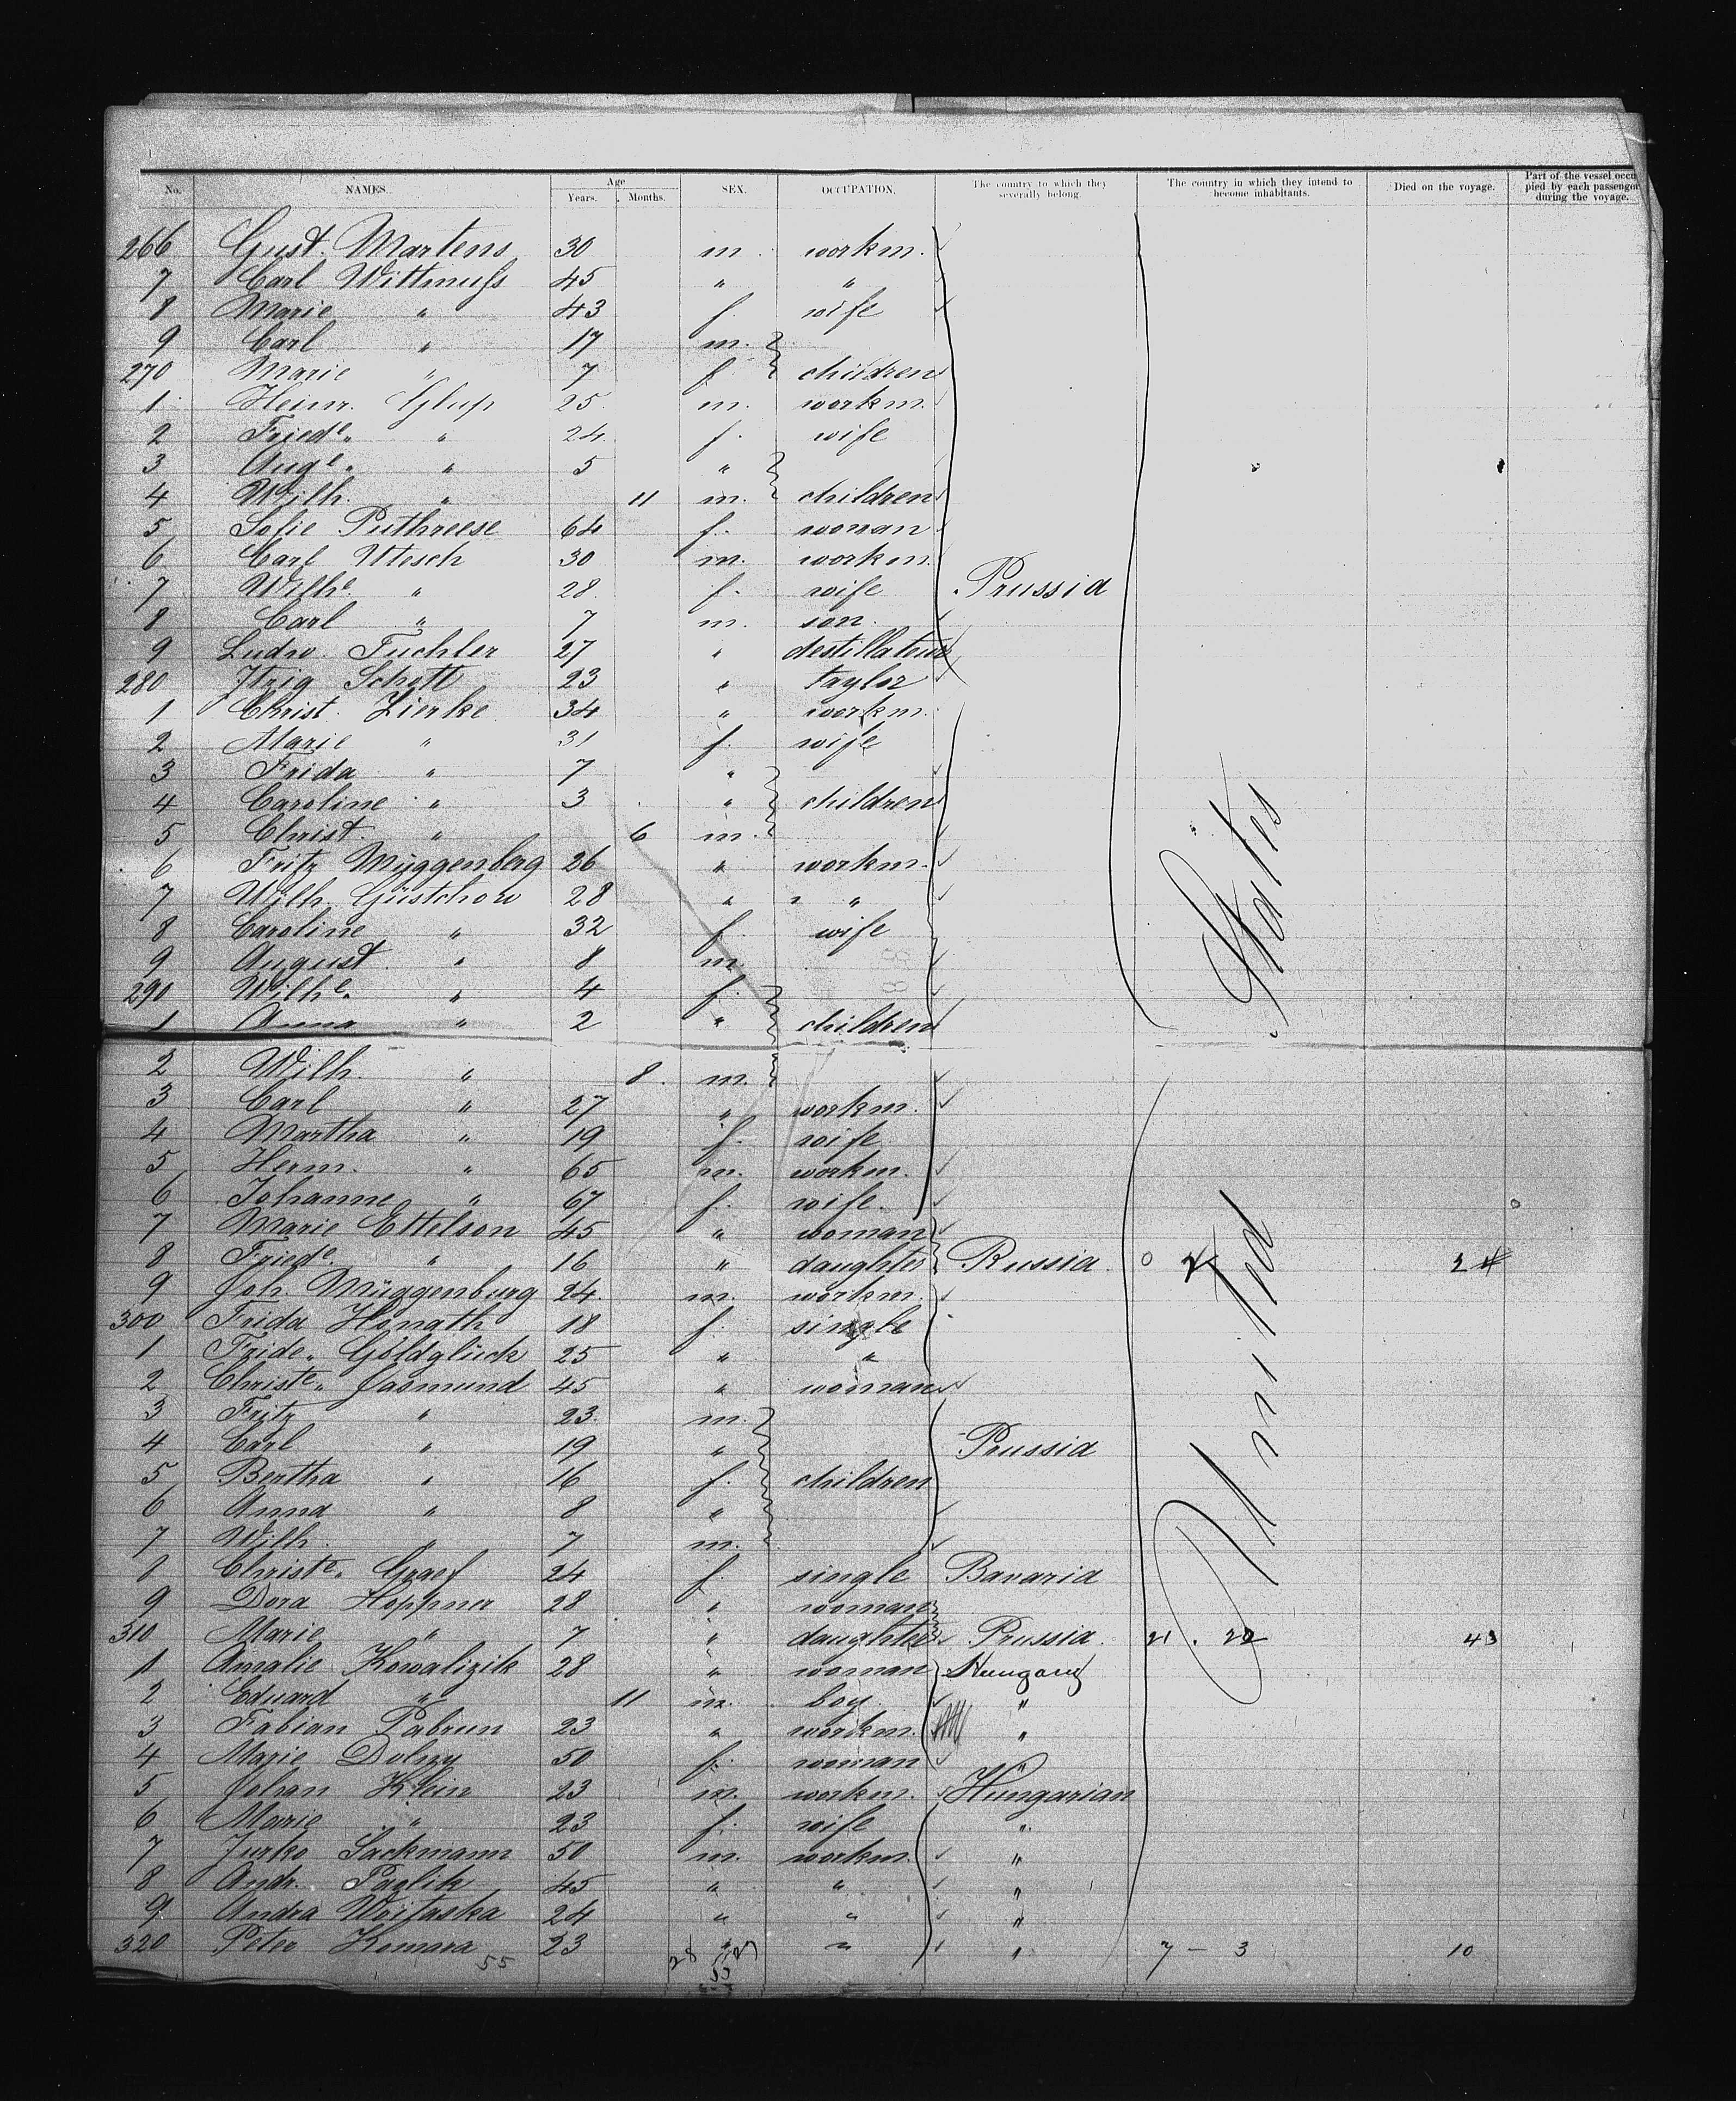 No. NAMES. Age Years. Months. SEX. OCCUPATION. The country to which they severally belong. The country in which they intend to become inhabitants. Died on the voyage. Part of the vessel occupied by each passenger during the voyage.
266 Gust. Martens 30 m. workm.
7 Carl Wittmuss 45 " "
8 Marie " 43 f. wife
9 Carl " 17 m.
270 Marie " 7 f. children
1 Heinr. Glup 25 m. workm.
2 Friede. " 24 f. wife
3 Auge. " 5 "
4 Wilh. " 11 m. children
5 Sofie Puthreese 64 f. woman
6 Carl Utesch 30 m. workm.
7 Wilhe. " 28 f. wife Prussia
8 Carl " 7 m. son.
9 Ludw. Fuchler 27 " destillateur
280 Itzig Schott 23 " taylor
1 Christ. Zierke 34 " workm.
2 Marie " 31 f. wife
3 Frida " 7 "
4 Caroline " 3 " children
5 Christ. " 6 m.
6 Fritz Müggenberg 26 " workm.
7 Wilh. Güstchow 28 " "
8 Caroline " 32 f. wife
9 August " 8 m.
290 Wilhe. " 4 f.
1 Anna " 2 " children
2 Wilh. " 8 m.
3 Carl " 27 " workm.
4 Martha " 19 f. wife
5 Herm. " 65 m. workm.
6 Johanne " 67 f. wife.
7 Marie Ettelson 45 " woman
8 Friede. " 16 " daughter Russia
9 Joh. Müggenburg 24 m. workm.
300 Frida Honath 18 f. single
1 Fride. Goldglück 25 " "
2 Christe. Jasmund 45 " woman
3 Fritz " 23 m.
4 Carl " 19 " Prussia
5 Bertha " 16 f. children
6 Anna " 8 "
7 Wilh. " 7 m.
8 Christe. Graef 24 f. single Bavaria
9 Dora Hoppner 28 " woman
310 Marie " 7 " daughter Prussia. 21 . 22 43
1 Amalie Kowalizik 28 " woman Hungary
2 Eduard " 11 m. boy "
3 Fabian Pabrun 23 " workm. "
4 Marie Dolny 50 f. woman "
5 Johan Klein 23 m. workm. Hungarian
6 Marie " 23 f. wife "
7 Jurko Sackmann 50 m. workm. "
8 Andr. Pavlik 45 " " "
9 Andra Woitaska 24 " " "
320 Peter Komara 23 " " " 7 - 3 10
55 28 27
United States